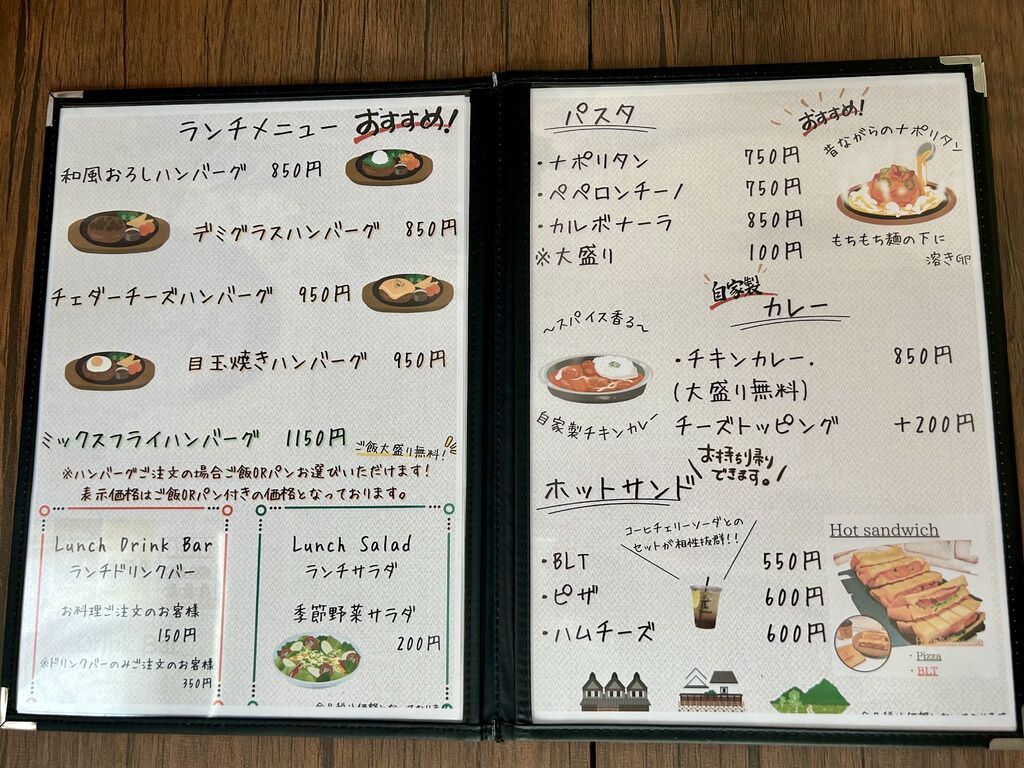 ランチメニュー おすすめ!
和風おろしハンバーグ 850円
デミグラスハンバーグ 850円
チェダーチーズハンバーグ 950円
目玉焼きハンバーグ 950円
ミックスフライハンバーグ 1150円 ご飯大盛り無料!
※ハンバーグご注文の場合ご飯ORパンお選びいただけます!
表示価格はご飯ORパン付きの価格となっております。
Lunch Drink Bar
ランチドリンクバー
お料理ご注文のお客様
150円
※ドリンクバーのみご注文のお客様
350円
Lunch Salad
ランチサラダ
季節野菜サラダ
200円
パスタ
おすすめ!
昔ながらのナポリタン
・ナポリタン 750円
・ペペロンチーノ 750円
・カルボナーラ 850円
※大盛り 100円
もちもち麺の下に
溶き卵
自家製
カレー
～スパイス香る～
・チキンカレー. 850円
(大盛り無料)
自家製チキンカレー
チーズトッピング +200円
お持ち帰り
できます。
ホットサンド
コーヒチェリーソーダとの
セットが相性抜群!!
・BLT 550円
・ピザ 600円
・ハムチーズ 600円
Hot sandwich
・Pizza
・BLT